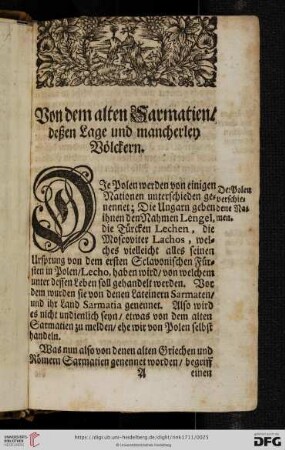 Von dem alten Sarmatien/
deßen Lage und mancherley
Völckern.
DIe Polen werden von einigen
Nationen unterschieden ge-
nennet; Die Ungarn geben
ihnen den Nahmen Lengel,
die Türcken Lechen, die
Moscoviter Lachos, wel-
ches vielleicht alles seinen
Ursprung von dem ersten Sclavonischen Für-
sten in Polen/ Lecho, haben wird/ von welchem
unter dessen Leben soll gehandelt werden. Vor
dem wurden sie von denen Lateinern Sarmaten/
und ihr Land Sarmatia genennet. Also wird
es nicht undienlich seyn/ etwas von dem alten
Sarmatien zu melden/ ehe wir von Polen selbst
handeln.
Der Polen
verschie-
dene Na-
men.
Was nun also von denen alten Griechen und
Römern Sarmatien genennet worden/ begriff
A einen
https://digi.ub.uni-heidelberg.de/diglit/
/0025
© Universitätsbibliothek Heidelberg
UNIVERSITÄTS-
BIBLIOTHEK
HEIDELBERG
Gefördert durch
DFG